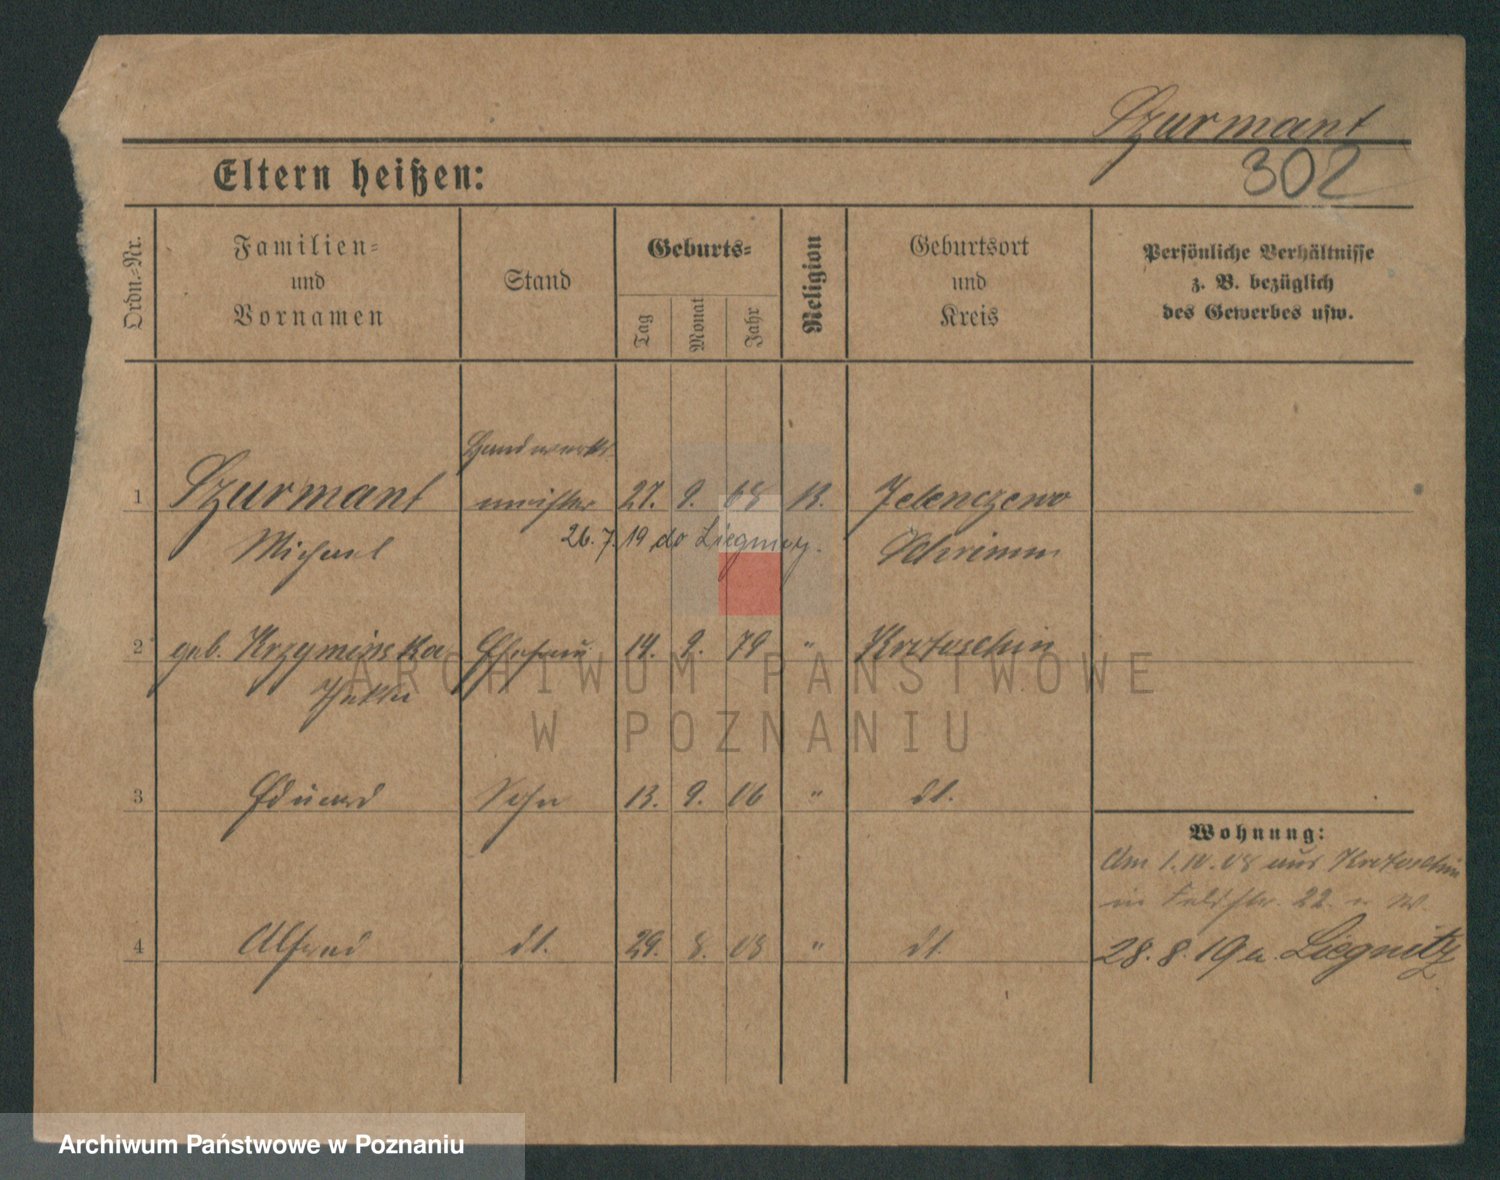 Szurmant
302
Eltern heißen:
Ordn.-Nr.
Familien-
und
Vornamen
Stand
Geburts-
Tag
Monat
Jahr
Religion
Geburtsort
und
Kreis
Persönliche Verhältnisse
z. B. bezüglich
des Gewerbes usw.
Handwerks
1 Szurmant meister 27. 9. 68 K.
Michael Schrimm
26. 7. 19 do Liegnicy.
2 geb. Krzyminska Ehefrau 14. 9. 79 " Krotoschin
3 Eduard Sohn 13. 9. 06 " dt.
Wohnung:
Am 1.10.08 aus Krotoschin
in 22.
4 Alfred dt. 29. 8. 08 " dt.
28. 8. 19 n. Liegnitz
ARCHIWUM PAŃSTWOWE
W POZNANIU
Archiwum Państwowe w Poznaniu